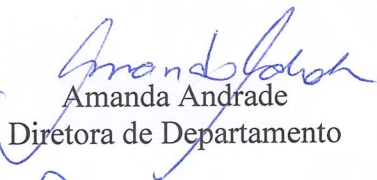 Amanda Andrade
Diretora de Departamento